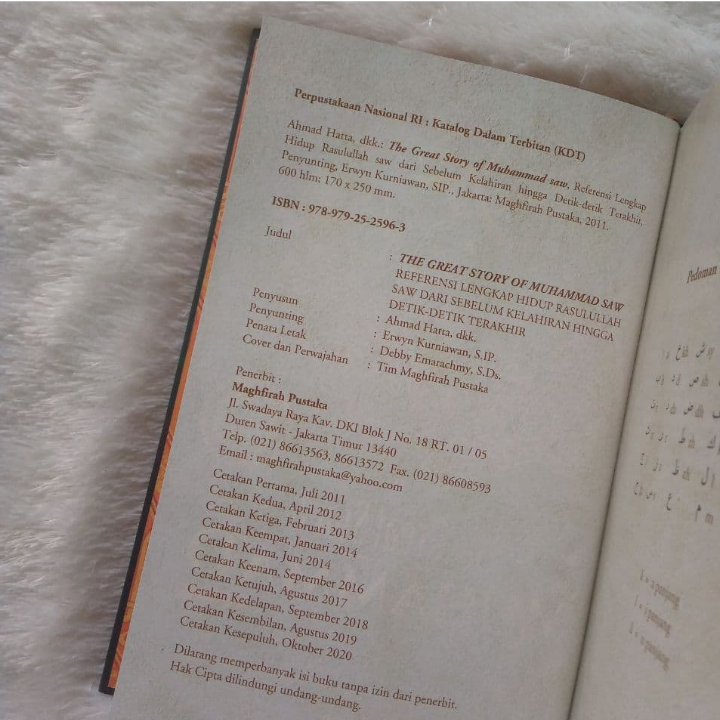 Perpustakaan Nasional RI : Katalog Dalam Terbitan (KDT)
Ahmad Hatta, dkk.: The Great Story of Muhammad saw, Referensi Lengkap
Hidup Rasulullah saw dari Sebelum Kelahiran hingga Detik-detik Terakhir,
Penyunting, Erwyn Kurniawan, SIP., Jakarta: Maghfirah Pustaka, 2011.
600 hlm: 170 x 250 mm.
ISBN : 978-979-25-2596-3
Judul : THE GREAT STORY OF MUHAMMAD SAW
REFERENSI LENGKAP HIDUP RASULULLAH
SAW DARI SEBELUM KELAHIRAN HINGGA
DETIK-DETIK TERAKHIR
Penyusun : Ahmad Hatta, dkk.
Penyunting : Erwyn Kurniawan, S.IP.
Penata Letak : Debby Emarachmy, S.Ds.
Cover dan Perwajahan : Tim Maghfirah Pustaka
Penerbit :
Maghfirah Pustaka
Jl. Swadaya Raya Kav. DKI Blok J No. 18 RT. 01 / 05
Duren Sawit - Jakarta Timur 13440
Telp. (021) 86613563, 86613572 Fax. (021) 86608593
Email : maghfirahpustaka@yahoo.com
Cetakan Pertama, Juli 2011
Cetakan Kedua, April 2012
Cetakan Ketiga, Februari 2013
Cetakan Keempat, Januari 2014
Cetakan Kelima, Juni 2014
Cetakan Keenam, September 2016
Cetakan Ketujuh, Agustus 2017
Cetakan Kedelapan, September 2018
Cetakan Kesembilan, Agustus 2019
Cetakan Kesepuluh, Oktober 2020
Dilarang memperbanyak isi buku tanpa izin dari penerbit.
Hak Cipta dilindungi undang-undang.
Pedoman